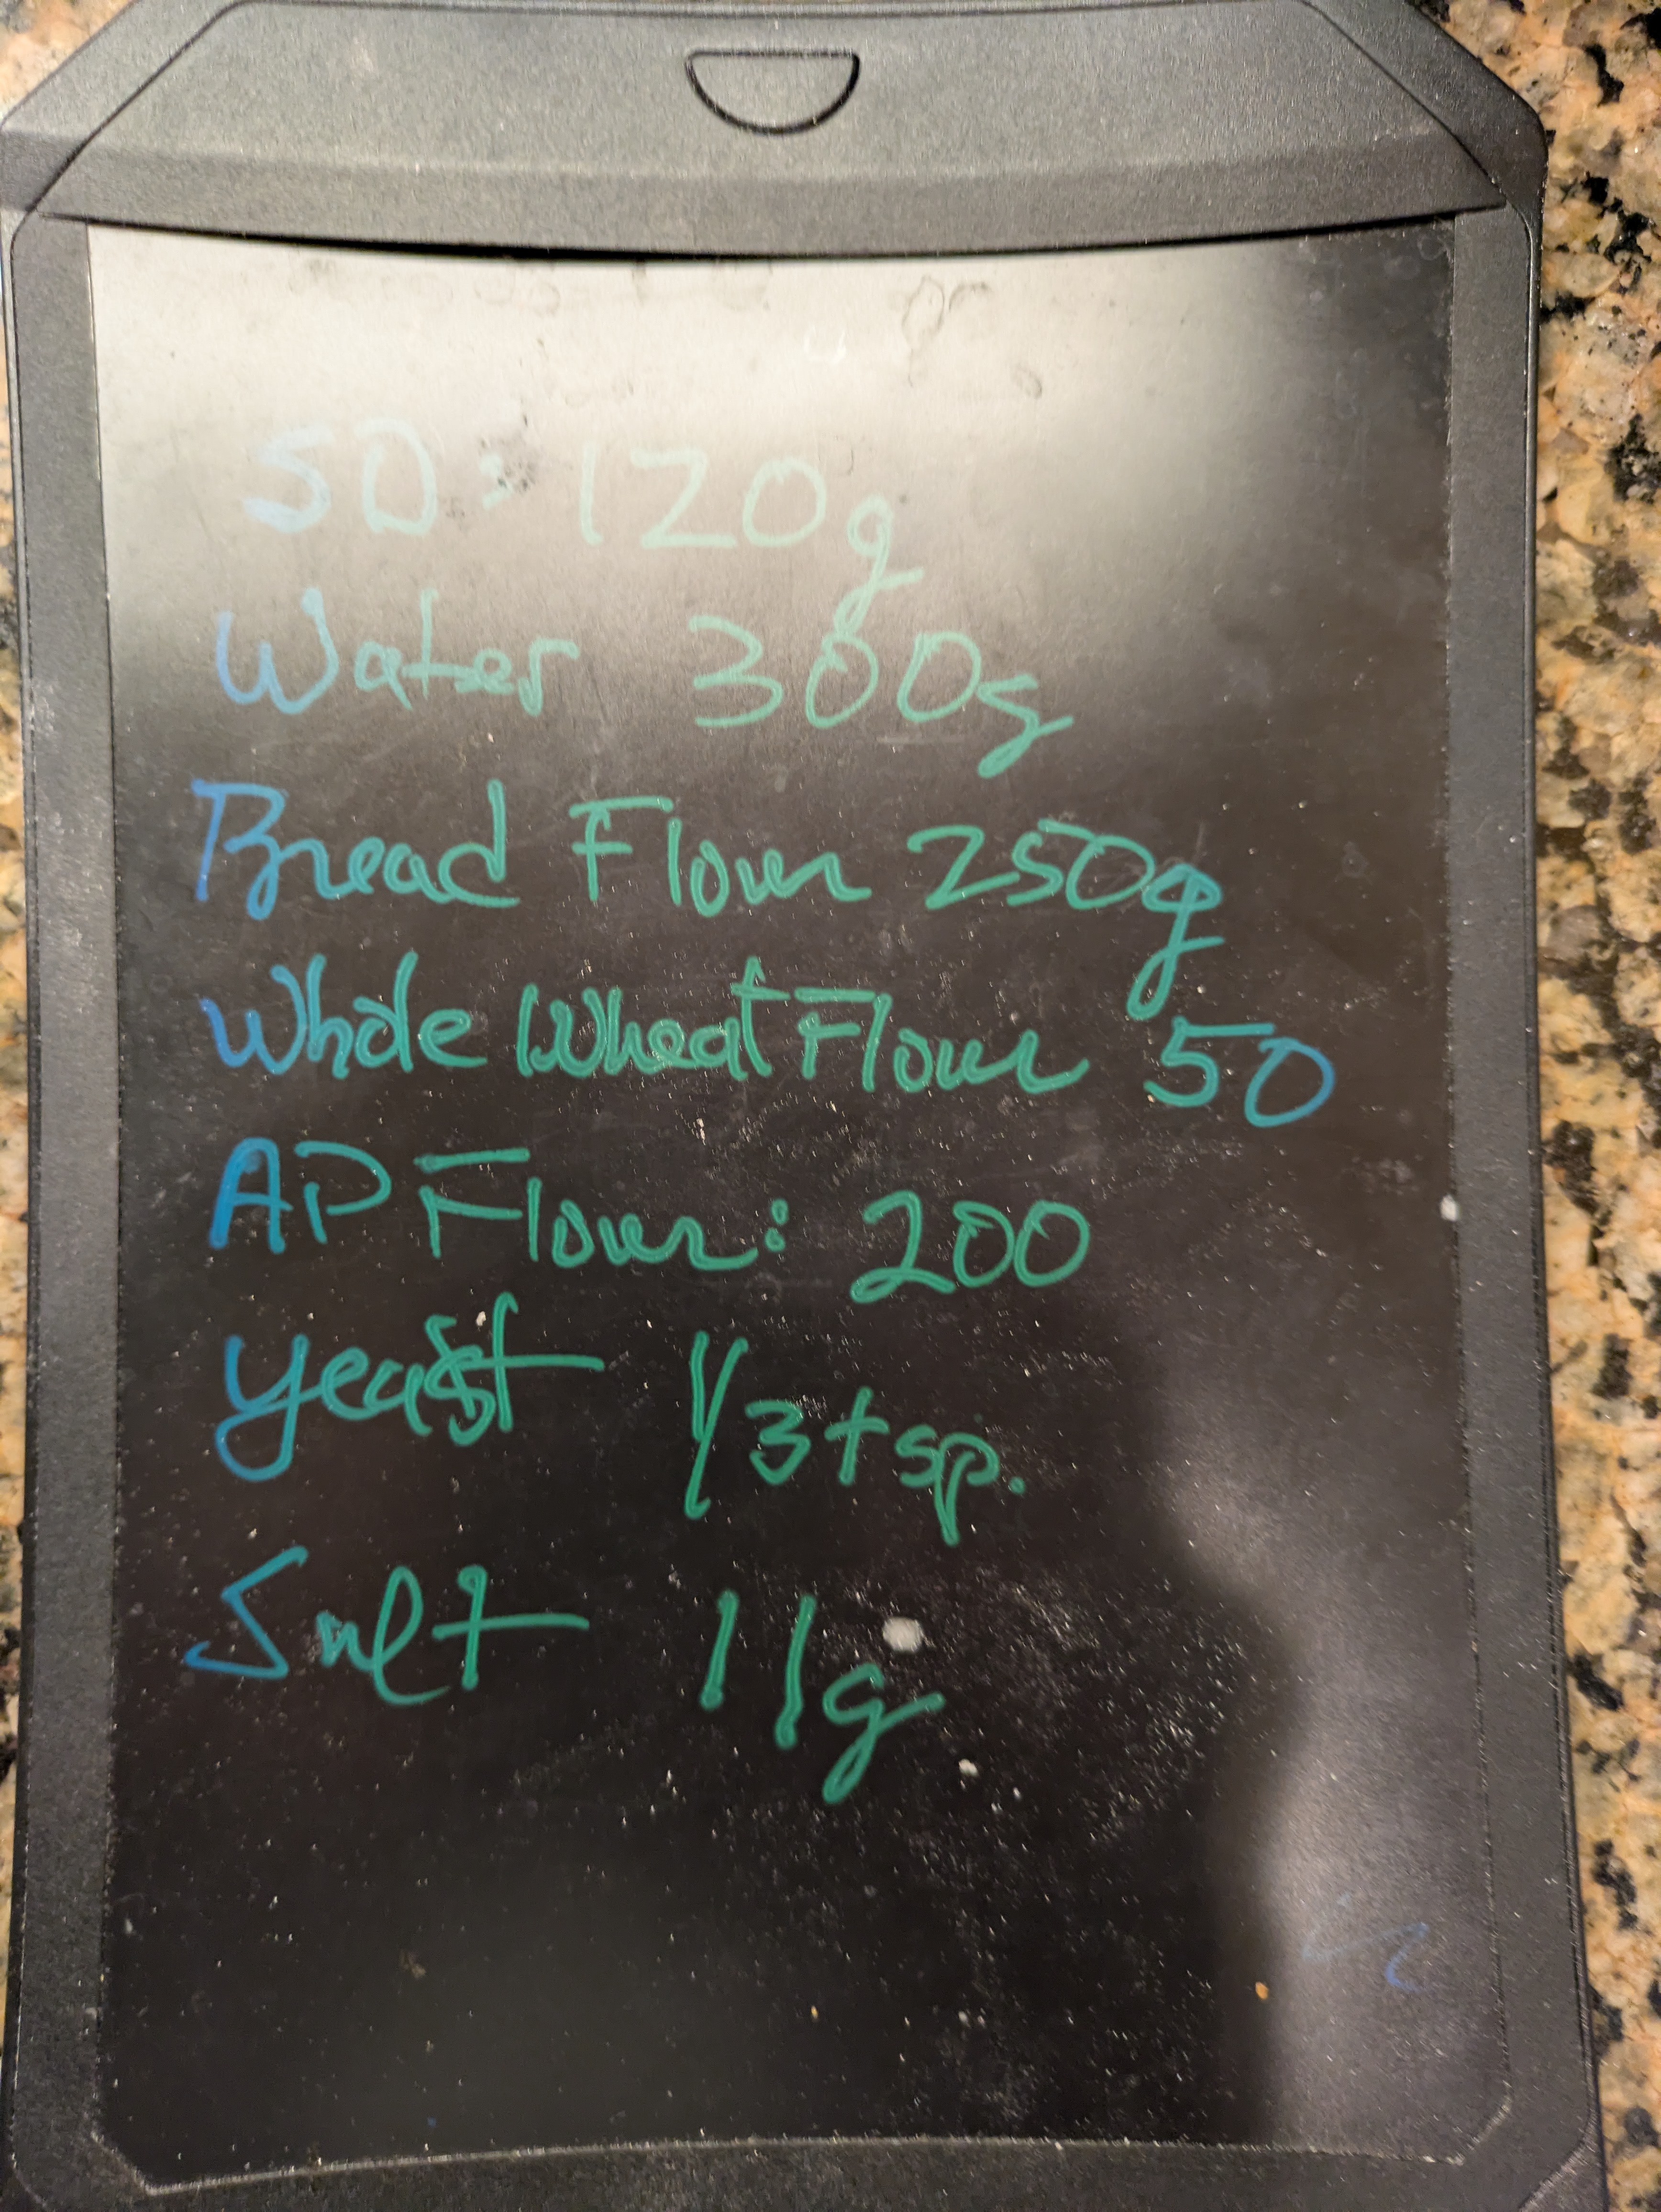 SD: 120g
Water 300g
Bread Flour 250g
Whole Wheat Flour 50
AP Flour: 200
yeast 1/3 tsp.
Salt 11g